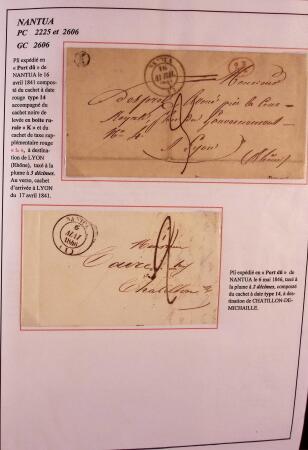 NANTUA
PC 2225 et 2606
GC 2606
Pli expédié en
« Port dû » de
NANTUA le 16
avril 1841 compo-
sté du cachet à date
rouge type 14
accompagné du
cachet noir de
levée en boîte ru-
rale « K » et du
cachet de taxe sup-
plémentaire rouge
à destina-
tion de LYON
(Rhône), taxé à la
plume à 3 décimes.
Au verso, cachet
d'arrivée à LYON
du 17 avril 1841.
NANTUA
16
AVRIL
1841
Monsieur
Lyon
(Rhône)
NANTUA
6
MAI
1846
(1)
Monsieur
Chatillon
Pli expédié en « Port dû » de
NANTUA le 6 mai 1846, taxé à
la plume à 2 décimes, composté
du cachet à date type 14, à des-
tination de CHATILLON-DE-
MICHAILLE.